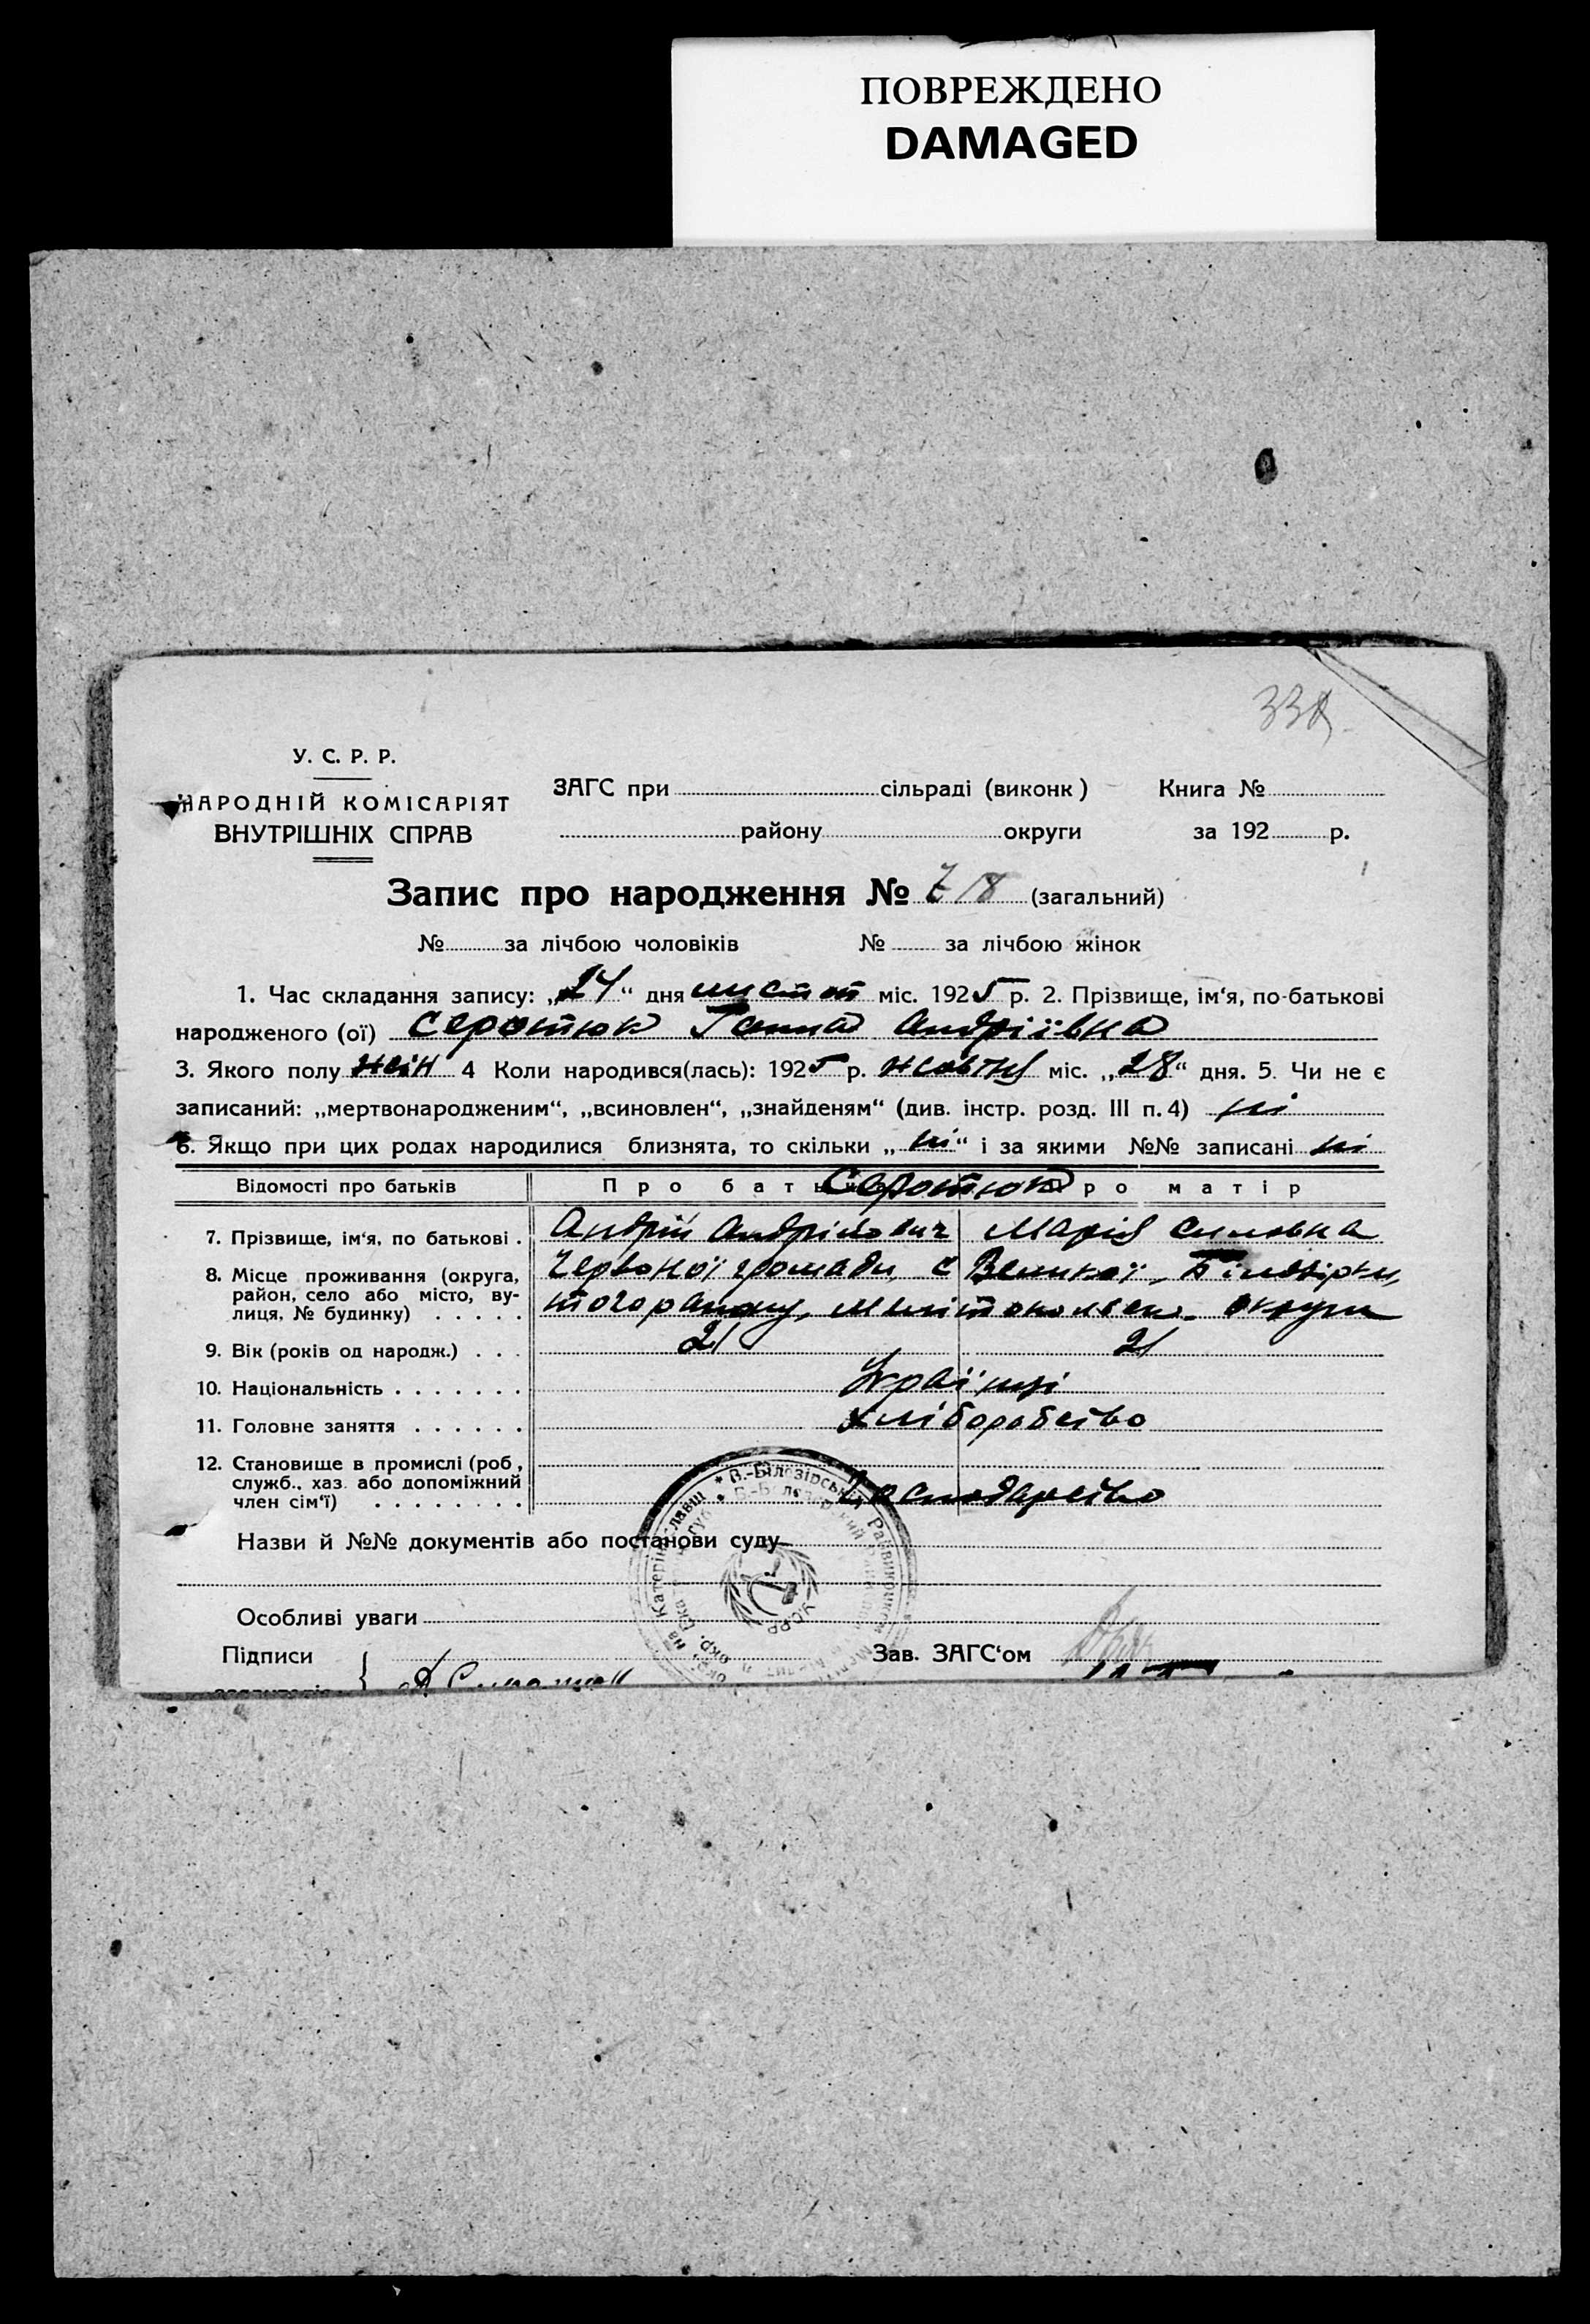 ПОВРЕЖДЕНО
DAMAGED
У. С. Р. Р.
НАРОДНІЙ КОМІСАРІЯТ
ВНУТРІШНІХ СПРАВ
ЗАГС при сільраді (виконк) Книга №
району округи за 192 р.
Запис про народження № 718 (загальний)
№ за лічбою чоловіків № за лічбою жінок
1. Час складання запису: „24“ дня листоп міс. 1925 р. 2. Прізвище, ім‘я, по-батькові
народженого (ої) Серотюк Ганна Андріївна
3. Якого полу жін 4 Коли народився(лась): 1925 р. жовтня міс. „28“ дня. 5. Чи не є
записаний: „мертвонародженим“, „всиновлен“, „знайденям“ (див. інстр. розд. III п. 4) ні
6. Якщо при цих родах народилися близнята, то скільки „ні“ і за якими №№ записані ні
Відомості про батьків Про батька Серотюк Про матір
7. Прізвище, ім‘я, по батькові . Андрій Андрійович Марія Силовна
8. Місце проживання (округа, Червоної громади, с Великої Білозірки,
район, село або місто, ву-
лиця, № будинку) . . . . . того району, Мелітопольсько. округи
9. Вік (років од народж.) . . . 21 21
10. Національність . . . . . . . Українці
11. Головне заняття . . . . . . хліборобство
12. Становище в промислі (роб,
служб., хаз. або допоміжний
член сім‘ї) . . . . . . . . Господарство
Назви й №№ документів або постанови суду
Особливі уваги
Підписи Зав. ЗАГС‘ом
* В.-Білозірський Райвиконком
УСРР